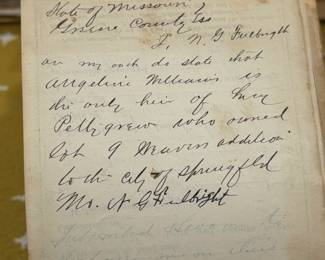 State of Missouri
Greene County SS
I, N G Fulbright
on my oath do state that
Angeline Williams is
the only heir of Lucy
Pettygrew who owned
Lot 9 Weavers addition
to the city of Springfield
Mo. N G Fulbright